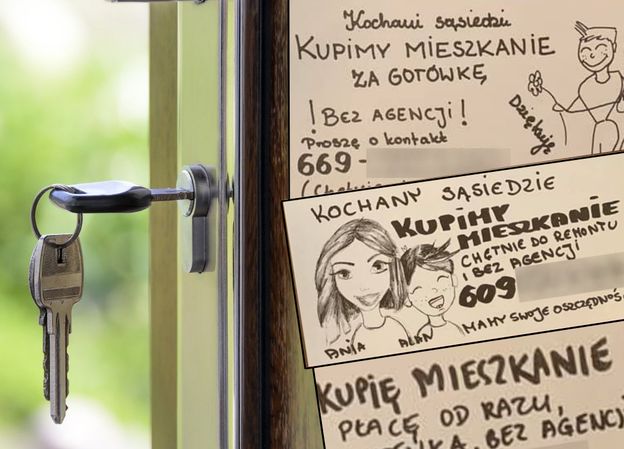 Kochani sąsiedzi
KUPIMY MIESZKANIE
ZA GOTÓWKĘ
! BEZ AGENCJI !
Proszę o kontakt
669 -
Dziękuję
KOCHANY SĄSIEDZIE
KUPIMY
MIESZKANIE
CHĘTNIE DO REMONTU
I BEZ AGENCJI
609
ANIA ALAN
MAMY SWOJE OSZCZĘDNOŚ
KUPIĘ MIESZKANIE
PŁACĘ OD RAZU,
BEZ AGENCJ